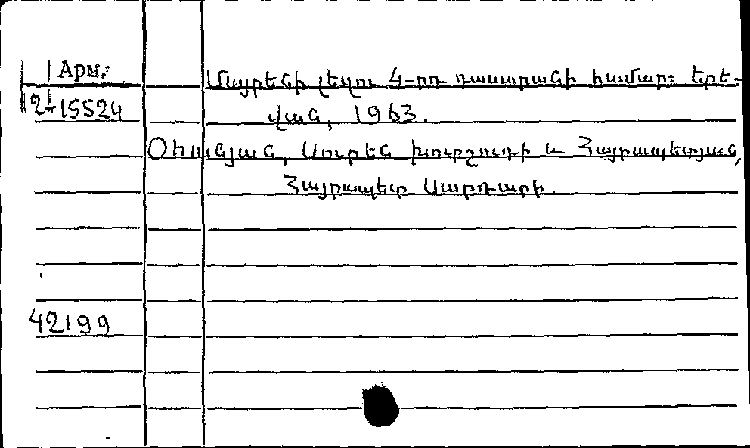 Арм.
12-15524
Մայրենի լեզու 4-րդ դասարանի համար: Երե-
վան, 1963.
Օհանյան, Սուրեն Խուրշուդի և Հայրապետյան,
Հայրապետ Սարդարի.
42199